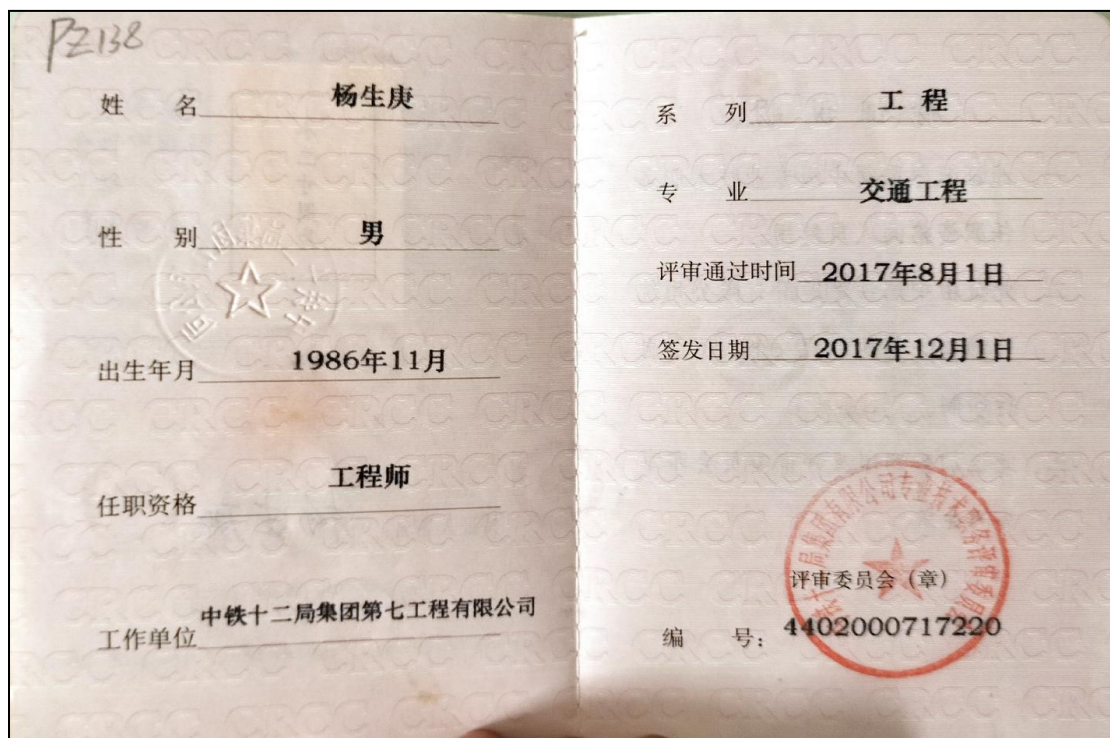 PZ138
姓 名 杨生庚
性 别 男
出生年月 1986年11月
任职资格 工程师
工作单位 中铁十二局集团第七工程有限公司
系 列 工 程
专 业 交通工程
评审通过时间 2017年8月1日
签发日期 2017年12月1日
评审委员会（章）
编 号: 4402000717220